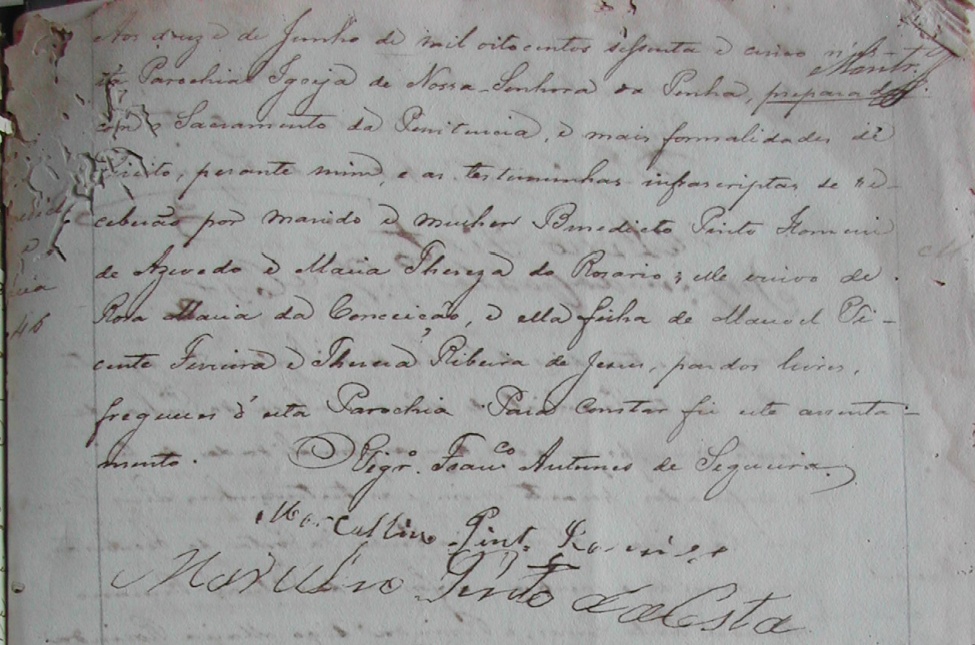 Aos doze de Junho de mil oito centos sessenta e cinco n'es-
ta Parochial Igreja de Nossa Senhora da Penha, preparados
com o Sacramento da Penitencia, e mais formalidades de
direito, perante mim, e as testimunhas infrascriptas se re-
ceberão por marido e mulher Benedicto Pinto Homem
de Azevedo e Maria Thereza do Rosario; elle viuvo de
Rosa Maria da Conceição, e ella filha de Manoel Vi-
cente Ferreira e Thereza Ribeira de Jesus, pardos livres,
freguezes d'esta Parochia Para constar fiz este assenta-
mento. O Vigr.º Franc.co Antunes de Sequeira
Marcellino Pint.
Pinto da Costa